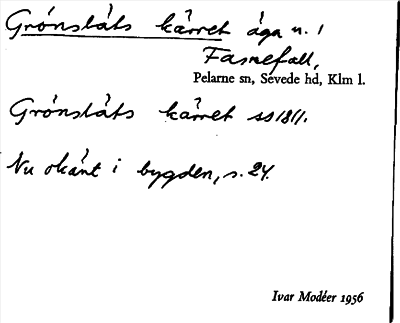 Grönslåts kärret äga n. 1
Fasnefall,
Pelarne sn, Sevede hd, Klm l.
Grönslåts kärret ss 1811.
Nu okänt i bygden, s. 24.
Ivar Modéer 1956